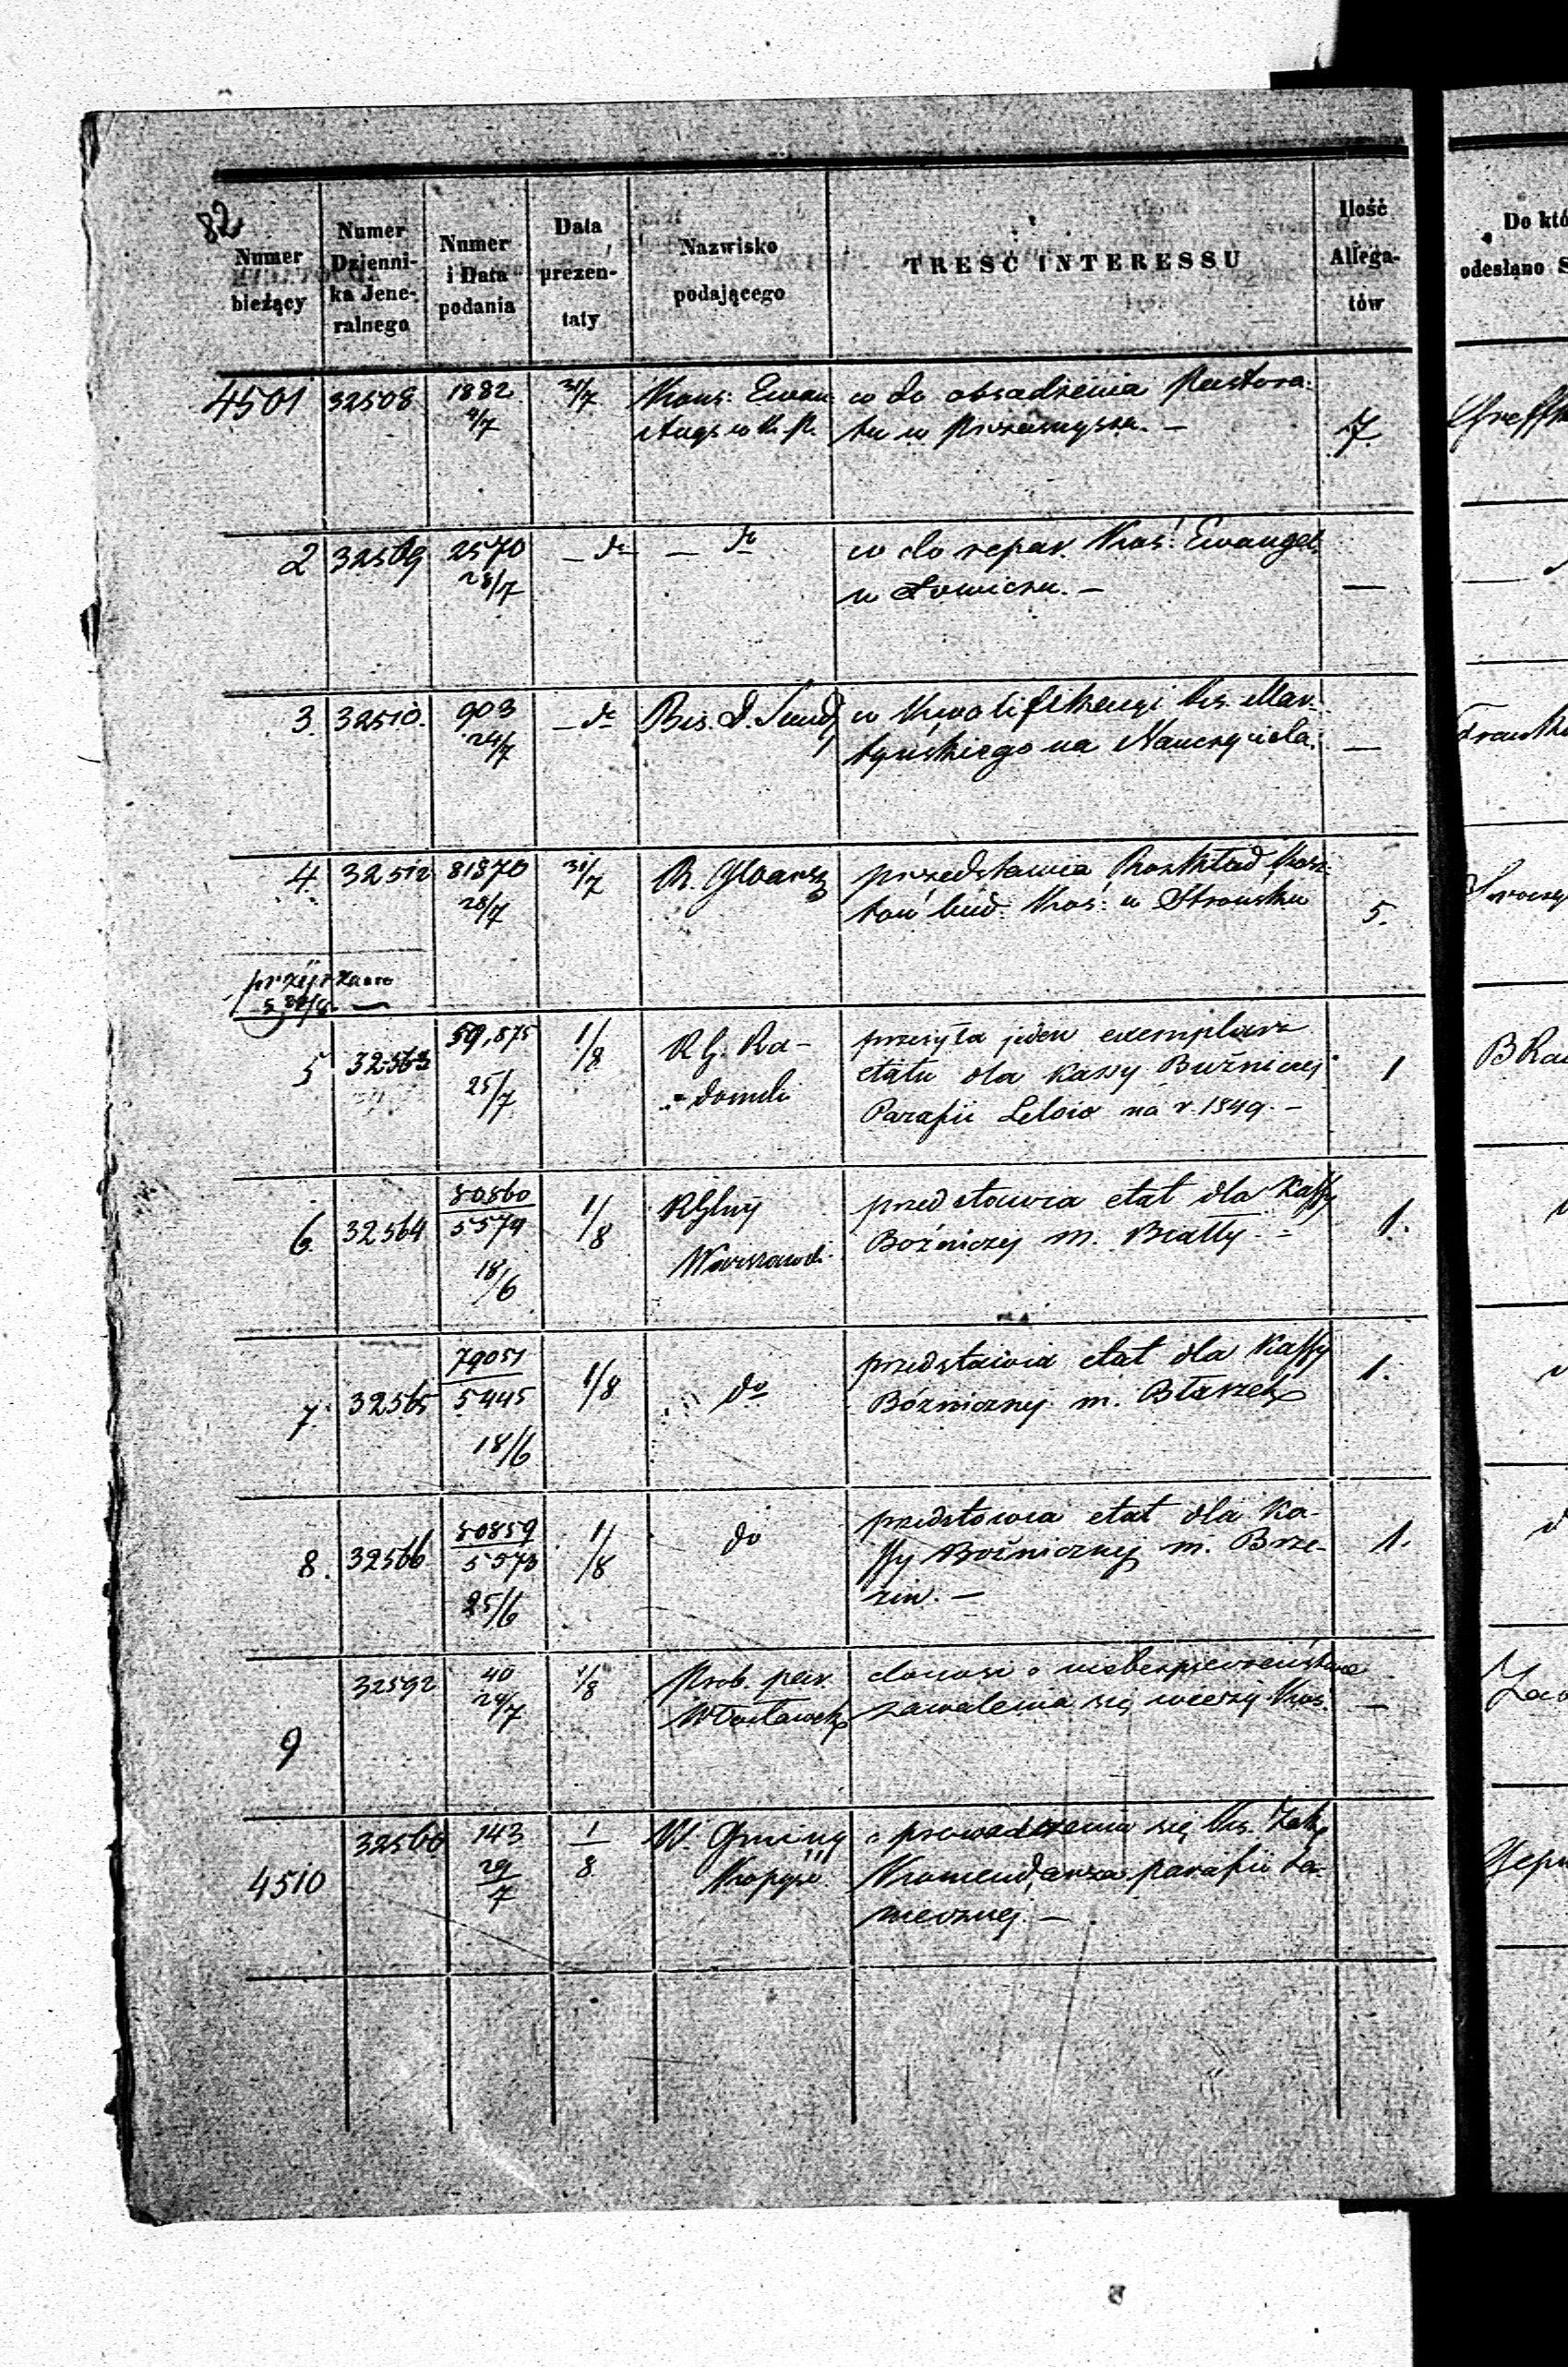 82
Numer bieżący | Numer Dziennika Jeneralnego | Numer i Data podania | Data prezentaty | Nazwisko podającego | TREŚĆ INTERESSU | Ilość Allegatów
Do któ
odesłano S
4501 | 32508 | 1882 4/7 | 31/7 | Kons: Ewan: | w do obsadzenia Pastora-
Augs w K. P. | tu w Przasnyszu. — | 7.
2 | 32509 | 2570 28/7 | — do | — do | w do repar. Koś: Ewangel.
w Łowiczu. — | —
3. | 32510. | 903 24/7 | — do | Bis. D. Sand | w kwalifikacyi Ks. Mar-
tyńskiego na Nauczyciela. | —
4. | 32512 | 81870 28/7 | 31/7 | R. G. Warsz | przedstawia Rozkład kosz-
tów bud: Koś: w Strońsku | 5.
5 | 32563 | 59,875 25/7 | 1/8 | R G. Ra- | przesyła jeden exemplarz
domski | etatu dla kassy Bużniczej | 1
Parafii Lelów na r. 1849. —
6. | 32564 | 80860 5574 18/6 | 1/8 | RGlny | przedstawia etat dla Kassy
Warszawsk. | Bożniczej m. Biały. — | 1.
7 | 32565 | 79051 5445 18/6 | 1/8 | do | przedstawia etat dla Kassy | 1.
Bóżnicznej m. Błaszek
8. | 32566 | 80859 5573 25/6 | 1/8 | do | przedstawia etat dla Ka-
ssy Bożnicznej m. Brze- | 1.
zin. —
9 | 32592 | 40 24/7 | 1/8 | Prob. par. | donosi o niebezpieczeństwie
Włocławek | zawalenia się wieży Koś. | —
4510 | 32560 | 143 29/7 | 1/8 | W. Gminy | o prowadzeniu się Ks.
Komendarza parafii